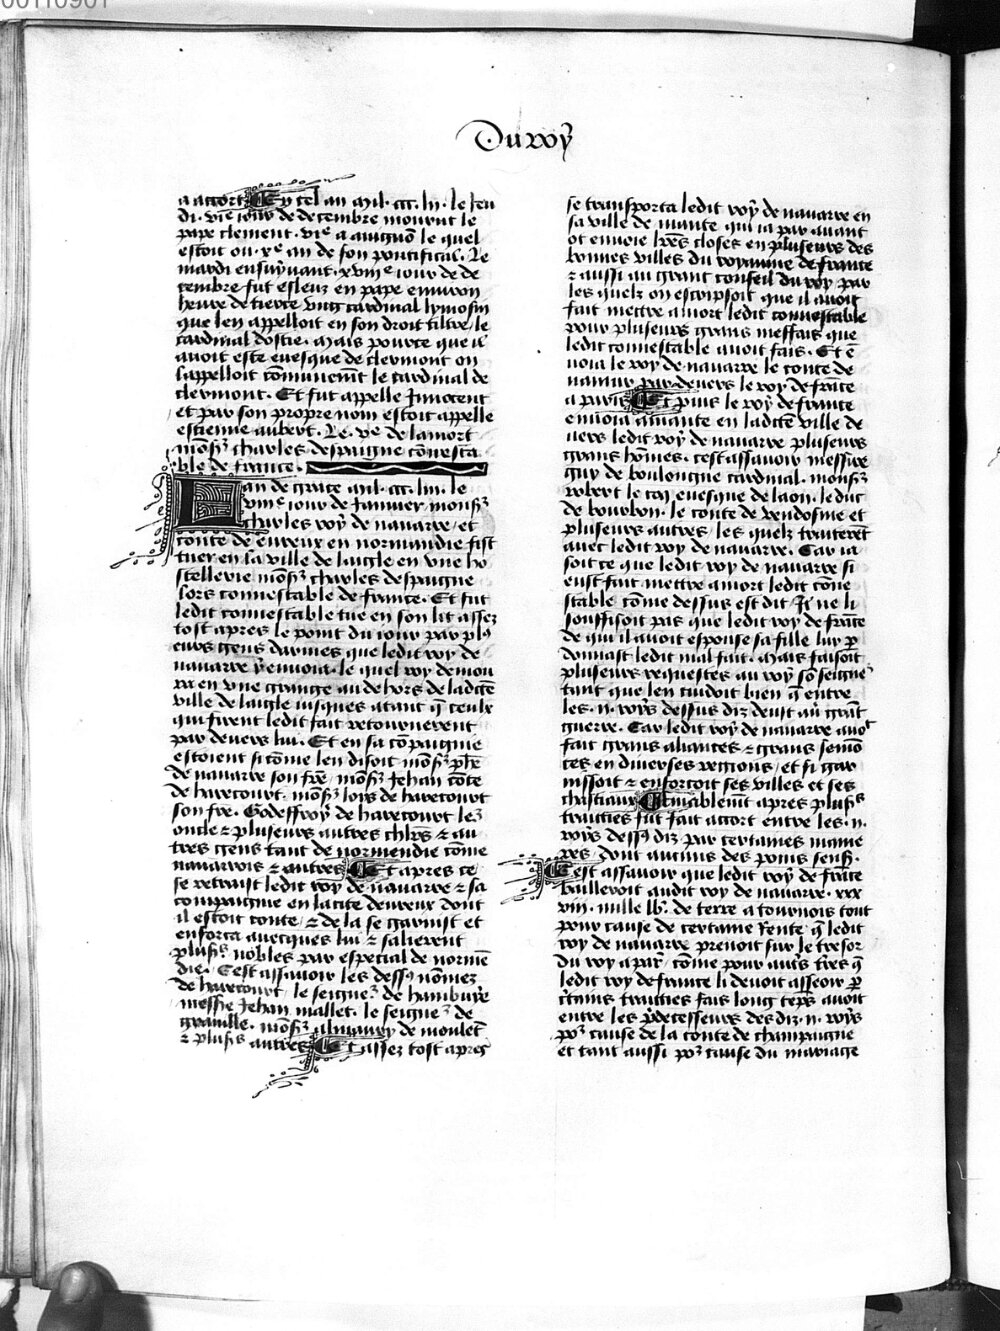 00110901
Du roy
a acort En cel an mil. ccc. lii. le jeu
di. vie jour de decembre mourut le
pape clement. vie a auignon le quel
estoit ou .xe. an de son pontifical. Le
mardi ensuyuant. xviiie jour de de
cembre fut esleuz en pape enuiron
heure de tierce vng cardinal lymosin
que len appelloit en son droit tiltre le
cardinal dostie. Mais pource que il
auoit este euesque de clermont on
lappelloit communemt le cardinal de
clermont. Et fut appelle Innocent
et par son propre nom estoit appelle
estienne aubert. Le. ve de la mort
monsr charles despaigne connesta
ble de france.
Lan de grace mil. ccc. liii. le
viiie jour de januier monsr
charles roy de nauarre et
conte de eureux en normandie fist
tuer en la ville de laigle en vne ho
stellerie monsr charles despaigne
lors connestable de france. Et fut
ledit connestable tue en son lit assez
tost apres le point du jour par plus
eurs gens darmes que ledit roy de
nauarre y enuoia. le quel roy demou
ra en vne grange au dehors de ladicte
ville de laigle jusques atant que ceulx
qui firent ledit fait retournerent
par deuers lui. Et en sa compaignie
estoient si comme len disoit monsr phe
de nauarre son fre, monsr Jehan conte
de harecourt. monsr loys de harecourt
son fre. Godeffroy de harecourt leur
oncle & pluseurs autres chlrs & au
tres gens tant de normendie comme
nauarrois & autres Et apres ce
se retraist ledit roy de nauarre & sa
compaignie en la cite deureux dont
il estoit conte, & de la se garnist et
enforca auecques lui & salierent
plusrs nobles par especial de normen
die. Cest assauoir les dessus nommez
de harecourt, le seigneur de hambuye
messire Jehan mallet. le seigneur de
grauille. monsr almaury de meulent
& plusrs autres Et assez tost apres
se transporta ledit roy de nauarre en
sa ville de mante qui ja par auant
ot enuoie lres closes en pluseurs des
bonnes villes du royaume de france
& aussi au grant conseil du roy par
les quelz on escripsoit que il auoit
fait mettre a mort ledit connestable
pour pluseurs grans meffais que
ledit connestable auoit fais. Et en
uoia le roy de nauarre le conte de
namur par deuers le roy de france
a paris Et puis le roy de france
enuoia amante en ladicte ville de
uers ledit roy de nauarre pluseurs
grans hommes. cest assauoir messire
guy de boulongne cardinal. monsr
robert le coq euesque de laon. le duc
de bourbon. le conte de vendosme et
pluseurs autres, les quelz traiterent
auec ledit roy de nauarre. Car ja
soit ce que ledit roy de nauarre si
eust fait mettre amort ledit conne
stable comme dessus est dit Il ne li
souffisoit pas que ledit roy de france
de qui il auoit espouse sa fille luy par
donnast ledit mal fait. mais faisoit
pluseurs requestes au roy son seigneur
tant que len cuidoit bien que entre
les. ii. roys dessus diz deust auoir grant
guerre. Car ledit roy de nauarre auoit
fait grans aliances & grans semon
ces en diuerses regions, et si gar
nissoit & enforcoit ses villes et ses
chastiaux Finablemt apres plusrs
traitties fut fait acort entre les. ii.
roys dessus diz par certaines manie
res, dont aucuns des poins sensuit.
Cest assauoir que ledit roy de france
bailleroit audit roy de nauarre. xxx
viii. mille lb. de terre a tournois tout
pour cause de certaine rente que ledit
roy de nauarre prenoit sur le tresor
du roy a paris, comme pour autres terres que
ledit roy de france li deuoit asseoir par
certains traitties fais long temps auoit
entre les predecesseurs des diz. ii. roys
pour cause de la conte de champaigne
et tant aussi pour cause du mariage